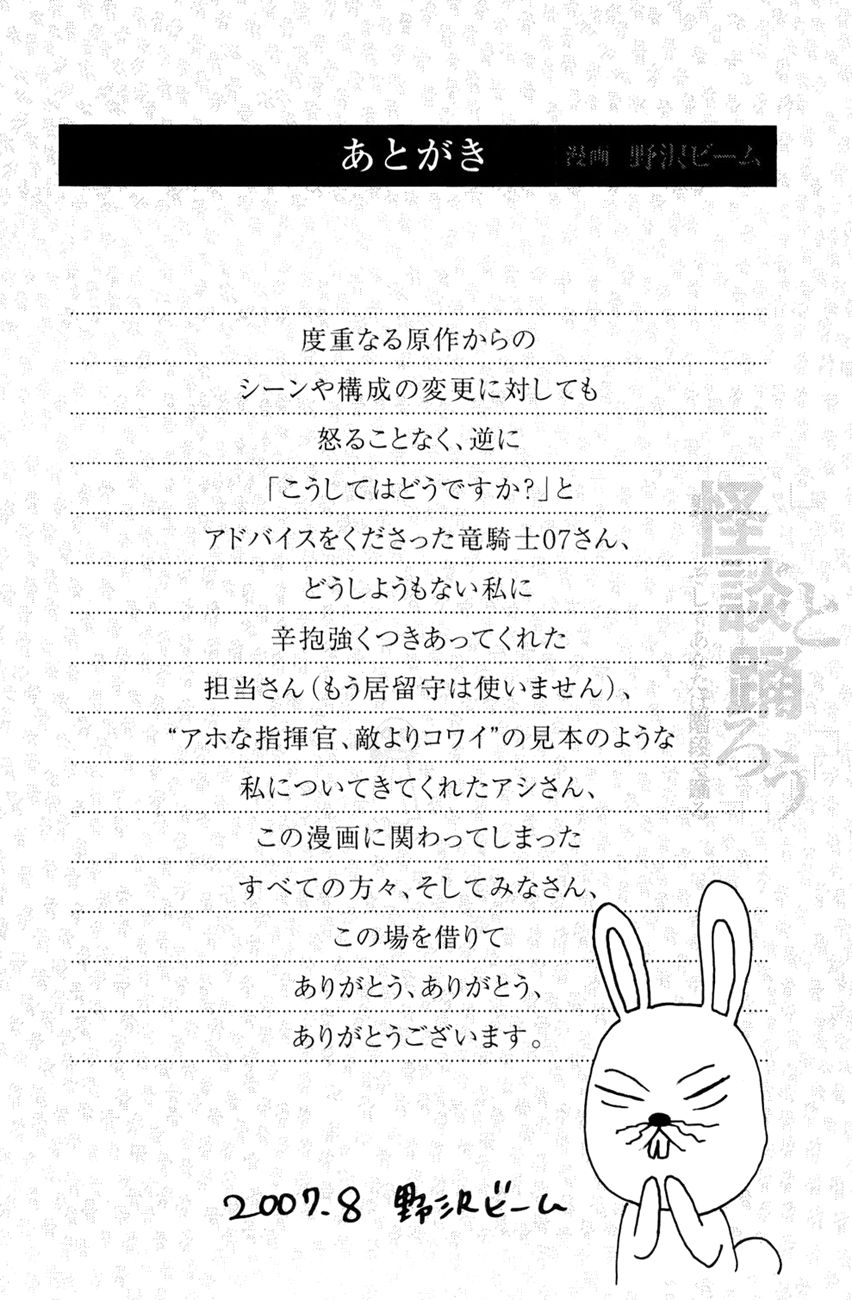 あとがき
漫画 野沢ビーム
度重なる原作からの
シーンや構成の変更に対しても
怒ることなく、逆に
「こうしてはどうですか?」と
アドバイスをくださった竜騎士07さん、
どうしようもない私に
辛抱強くつきあってくれた
担当さん(もう居留守は使いません)、
“アホな指揮官、敵よりコワイ”の見本のような
私についてきてくれたアシさん、
この漫画に関わってしまった
すべての方々、そしてみなさん、
この場を借りて
ありがとう、ありがとう、
ありがとうございます。
怪談と踊ろう
2007.8 野沢ビーム